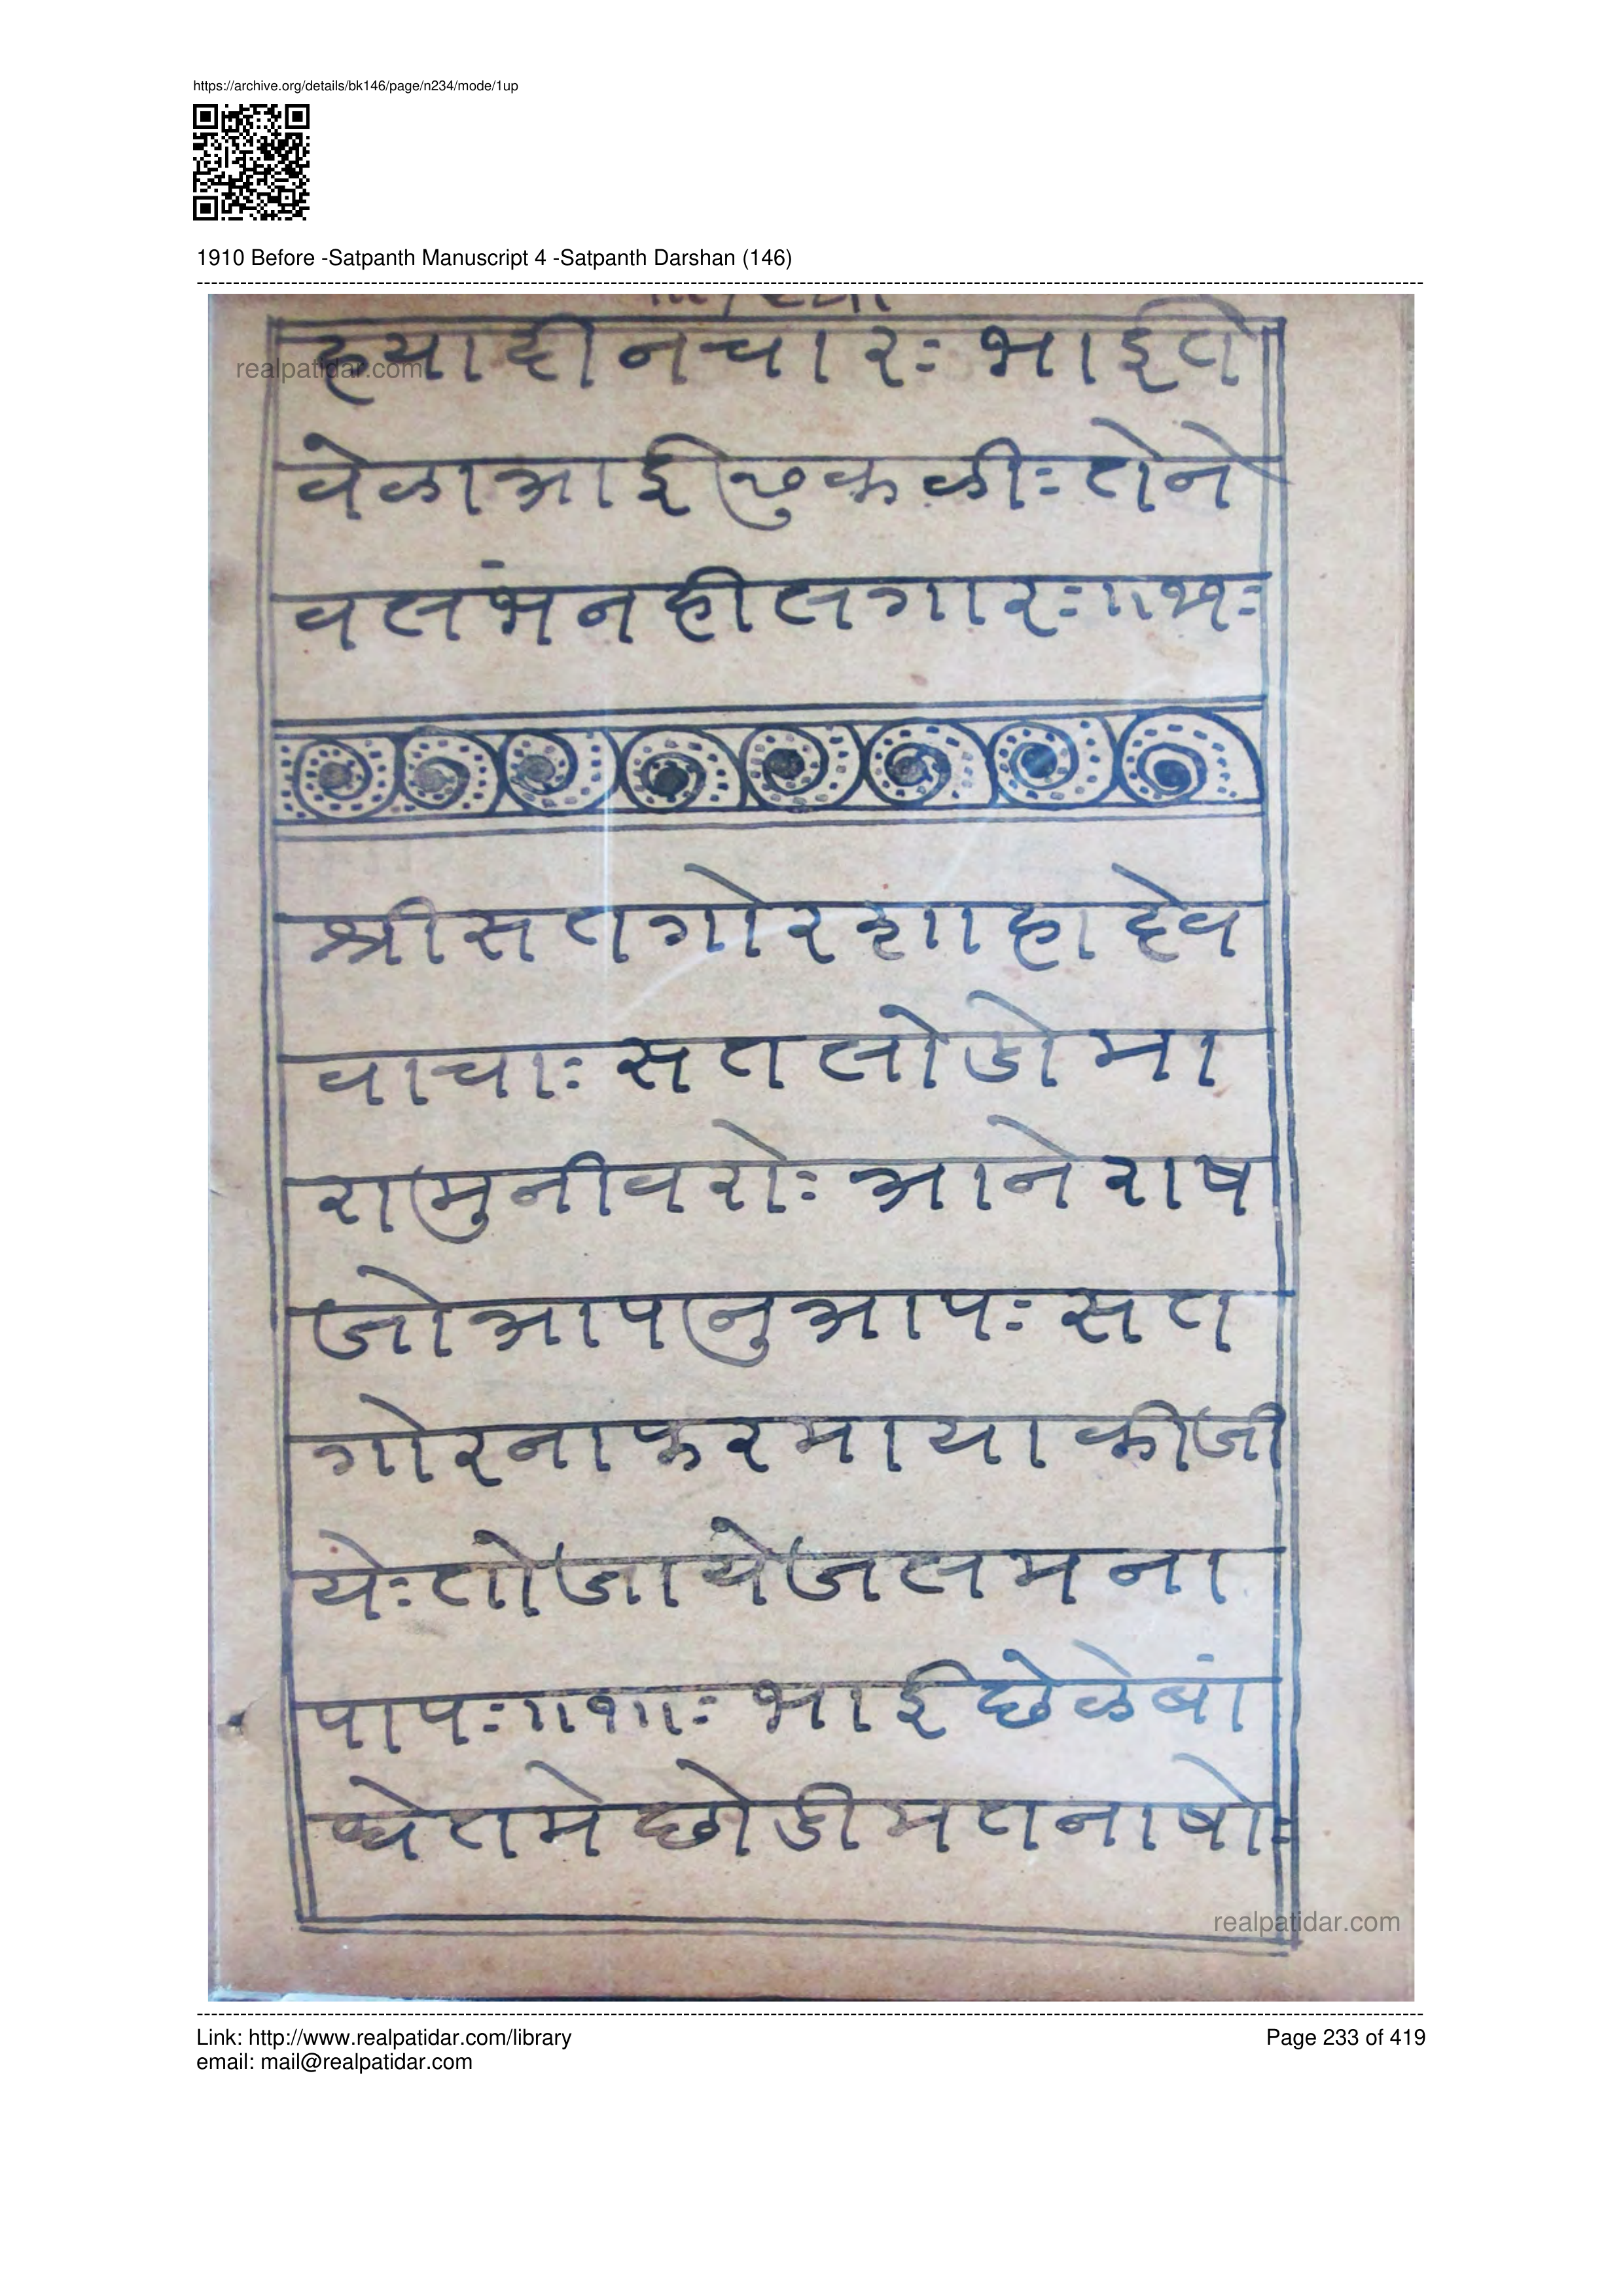 https://archive.org/details/bk146/page/n234/mode/1up
1910 Before -Satpanth Manuscript 4 -Satpanth Darshan (146)
realpatidar.com
ह्यादीनचारः भाईते
वेळाआई छुकळीः तेने
वसंभनहीलगारः
श्रीसतगोरशाहादेव
वाचाः सतलोडोमा
रामुनीवरोः आनेराष
जोआपनुआपः सत
गोरनाफरमायाकीजी
येः तोजायेजलमना
पापः ॥१॥ः भाईछेळेबां
धेतमेछोडीमतनाषोः
realpatidar.com
Link: http://www.realpatidar.com/library
email: mail@realpatidar.com
Page 233 of 419